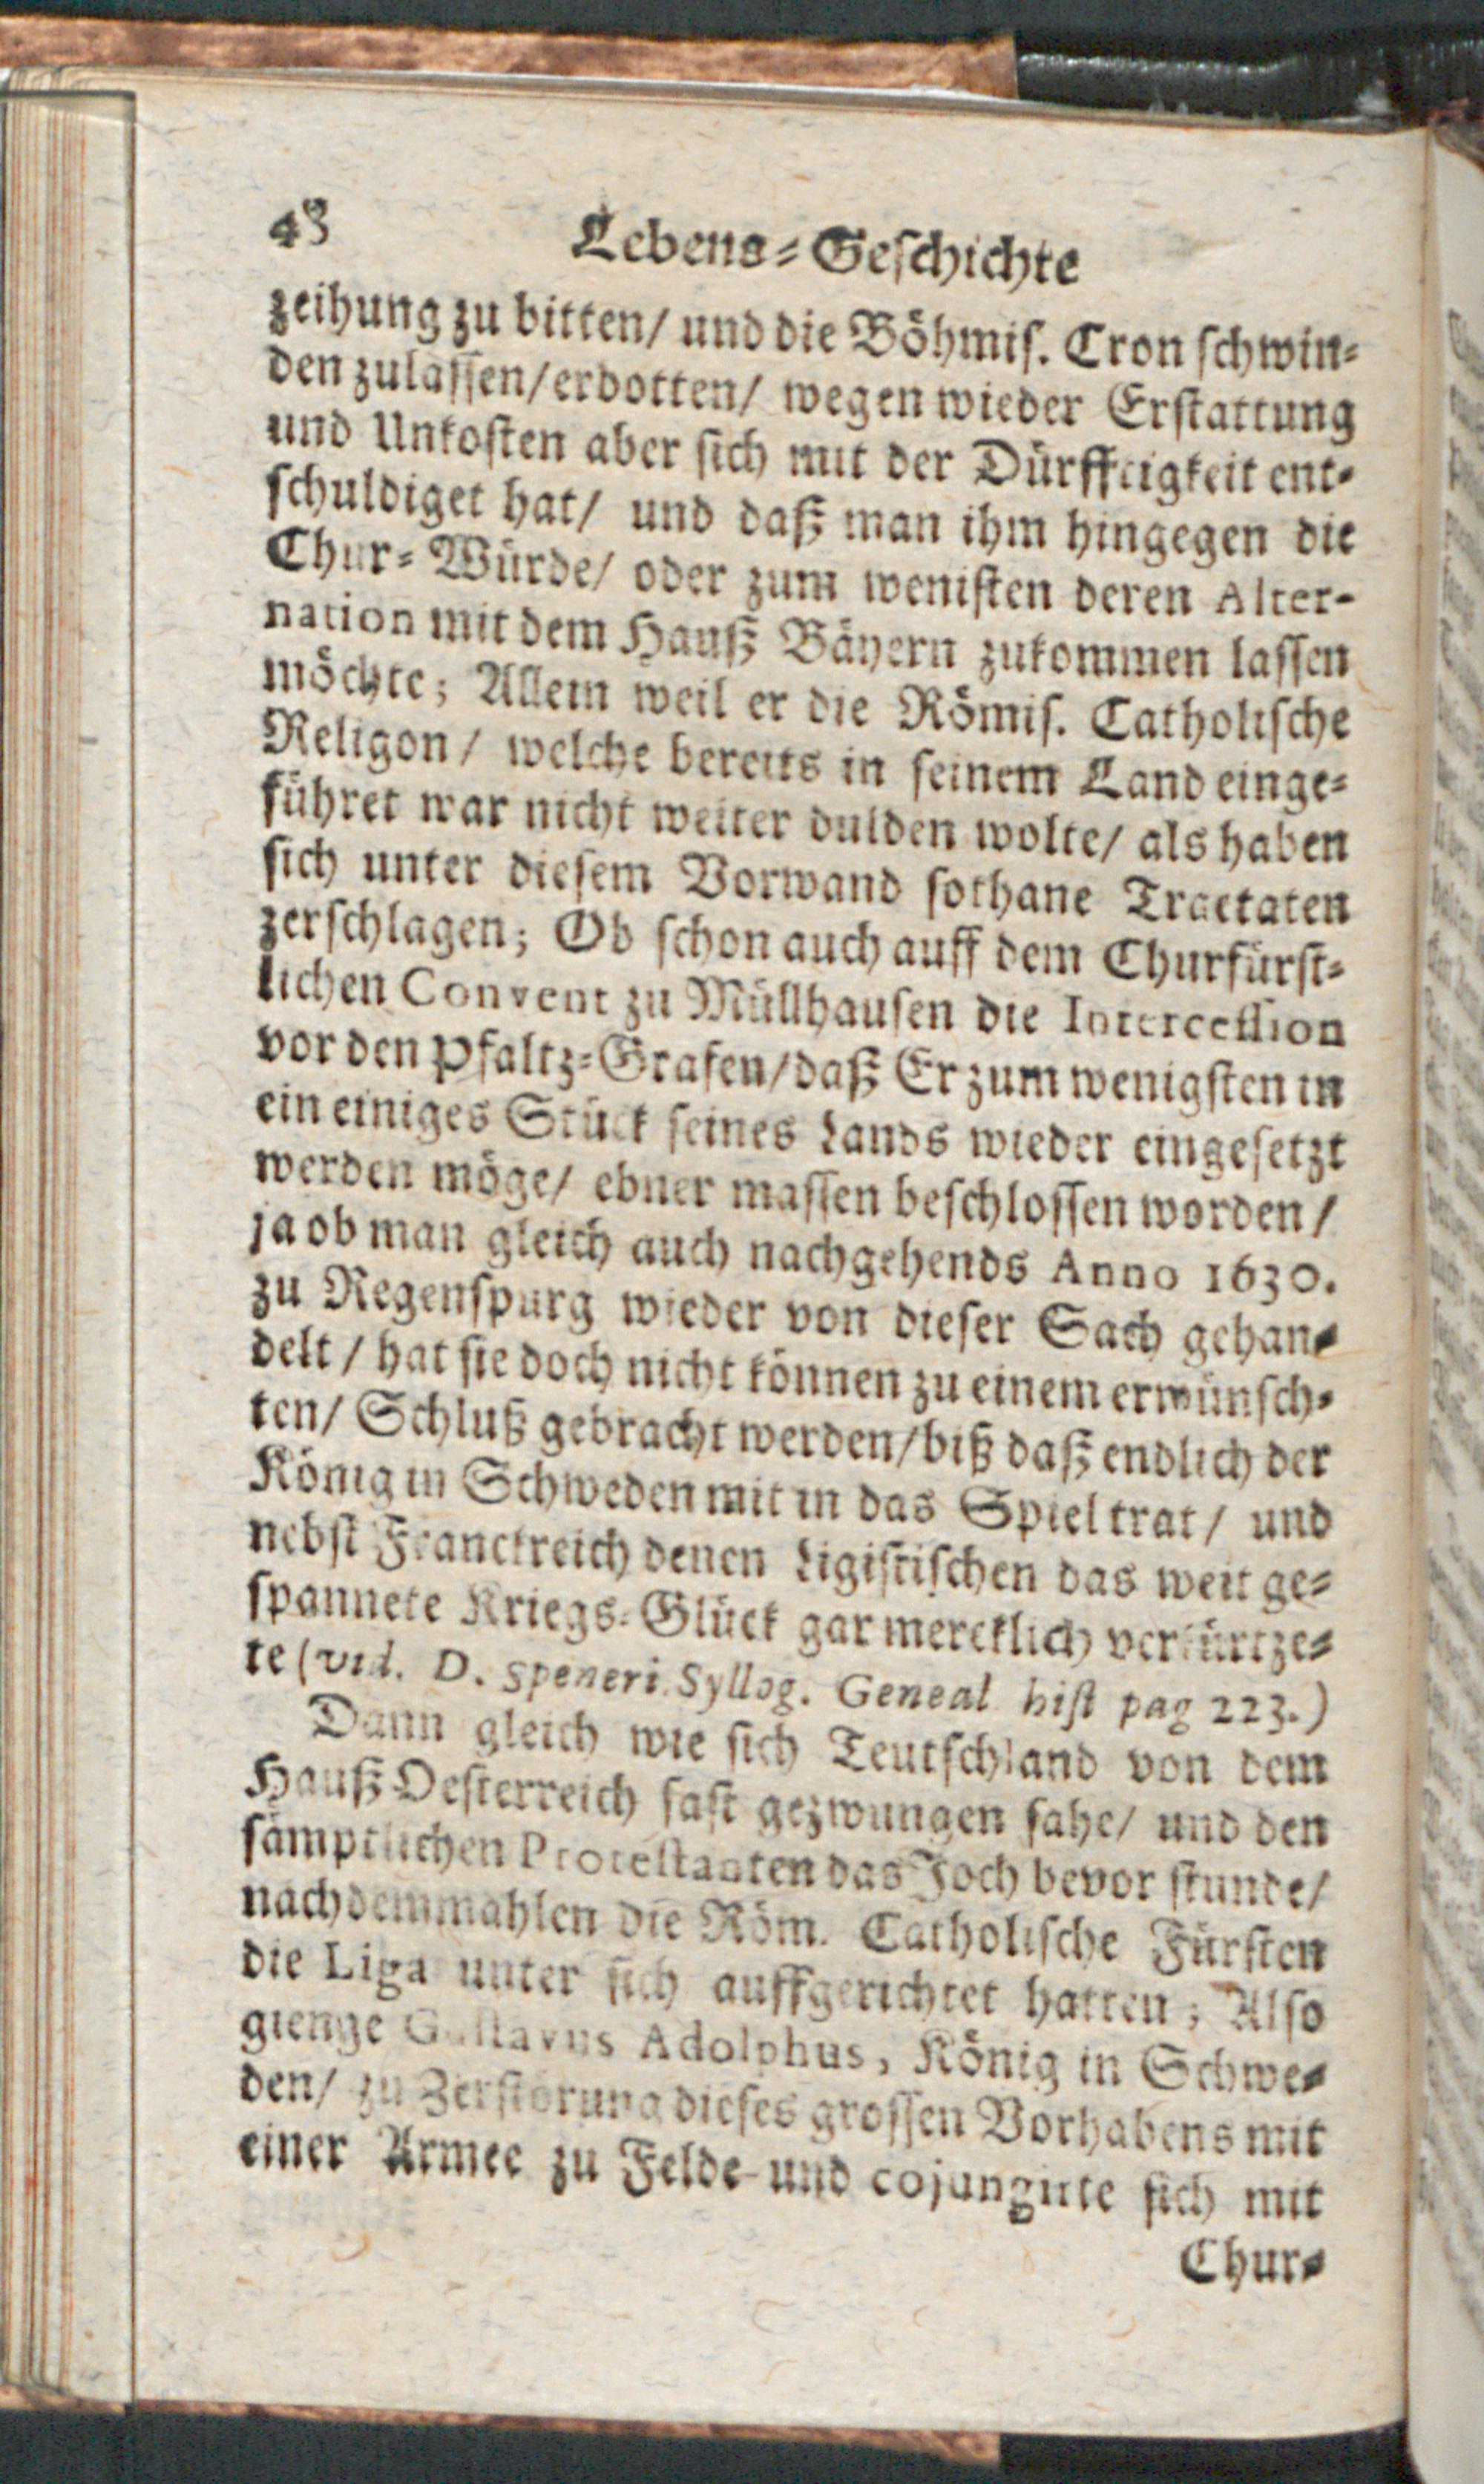 48 Lebens-Geschichte
zeihung zu bitten/ und die Böhmis. Cron schwin-
den zulassen/erbotten/ wegen wieder Erstattung
und Unkosten aber sich mit der Dürfftigkeit ent-
schuldiget hat/ und daß man ihm hingegen die
Chur-Würde/ oder zum wenisten deren Alter-
nation mit dem Hauß Bäyern zukommen lassen
möchte; Allein weil er die Römis. Catholische
Religon/ welche bereits in seinem Land einge-
führet war nicht weiter dulden wolte/ als haben
sich unter diesem Vorwand sothane Tractaten
zerschlagen; Ob schon auch auff dem Churfürst-
lichen Convent zu Müllhausen die Intercession
vor den Pfaltz-Grafen/daß Er zum wenigsten in
ein einiges Stück seines Lands wieder eingesetzt
werden möge/ ebner massen beschlossen worden/
ja ob man gleich auch nachgehends Anno 1630.
zu Regenspurg wieder von dieser Sach gehan-
delt/ hat sie doch nicht können zu einem erwünsch-
ten/ Schluß gebracht werden/biß daß endlich der
König in Schweden mit in das Spiel trat/ und
nebst Franckreich denen Ligistischen das weit ge-
spannete Kriegs-Glück gar mercklich verkürtze-
te (vid. D. Speneri Syllog. Geneal hist pag 223.)
Dann gleich wie sich Teutschland von dem
Hauß Oesterreich fast gezwungen sahe/ und den
sämptlichen Protestanten das Joch bevor stunde/
nachdemmahlen die Röm. Catholische Fürsten
die Liga unter sich auffgerichtet hatten; Also
gienge Gustavus Adolphus, König in Schwe-
den/ zu Zerstörung dieses grossen Vorhabens mit
einer Armee zu Felde und cojungirte sich mit
Chur-